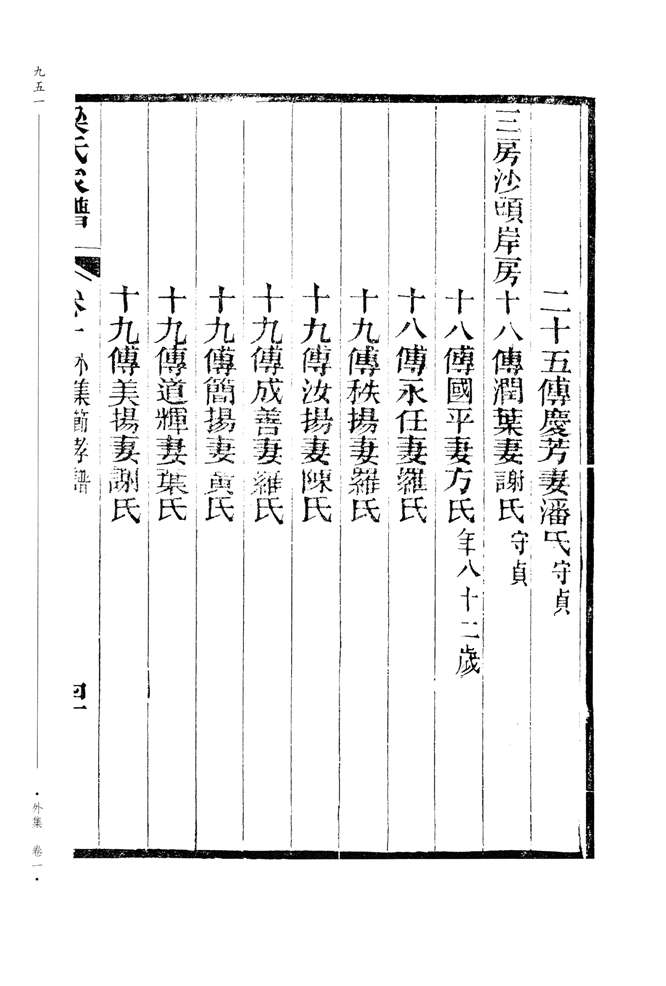 二十五傳慶芳妻潘氏守貞
三房沙頭岸房十八傳潤葉妻謝氏守貞
十八傳國平妻方氏年八十二歲
十八傳永任妻羅氏
十九傳秩揚妻羅氏
十九傳汝揚妻陳氏
十九傳成善妻羅氏
十九傳簡揚妻黃氏
十九傳道輝妻葉氏
十九傳美揚妻謝氏
梁氏家譜 卷一 外集節孝譜
九五一
·外集 卷一·